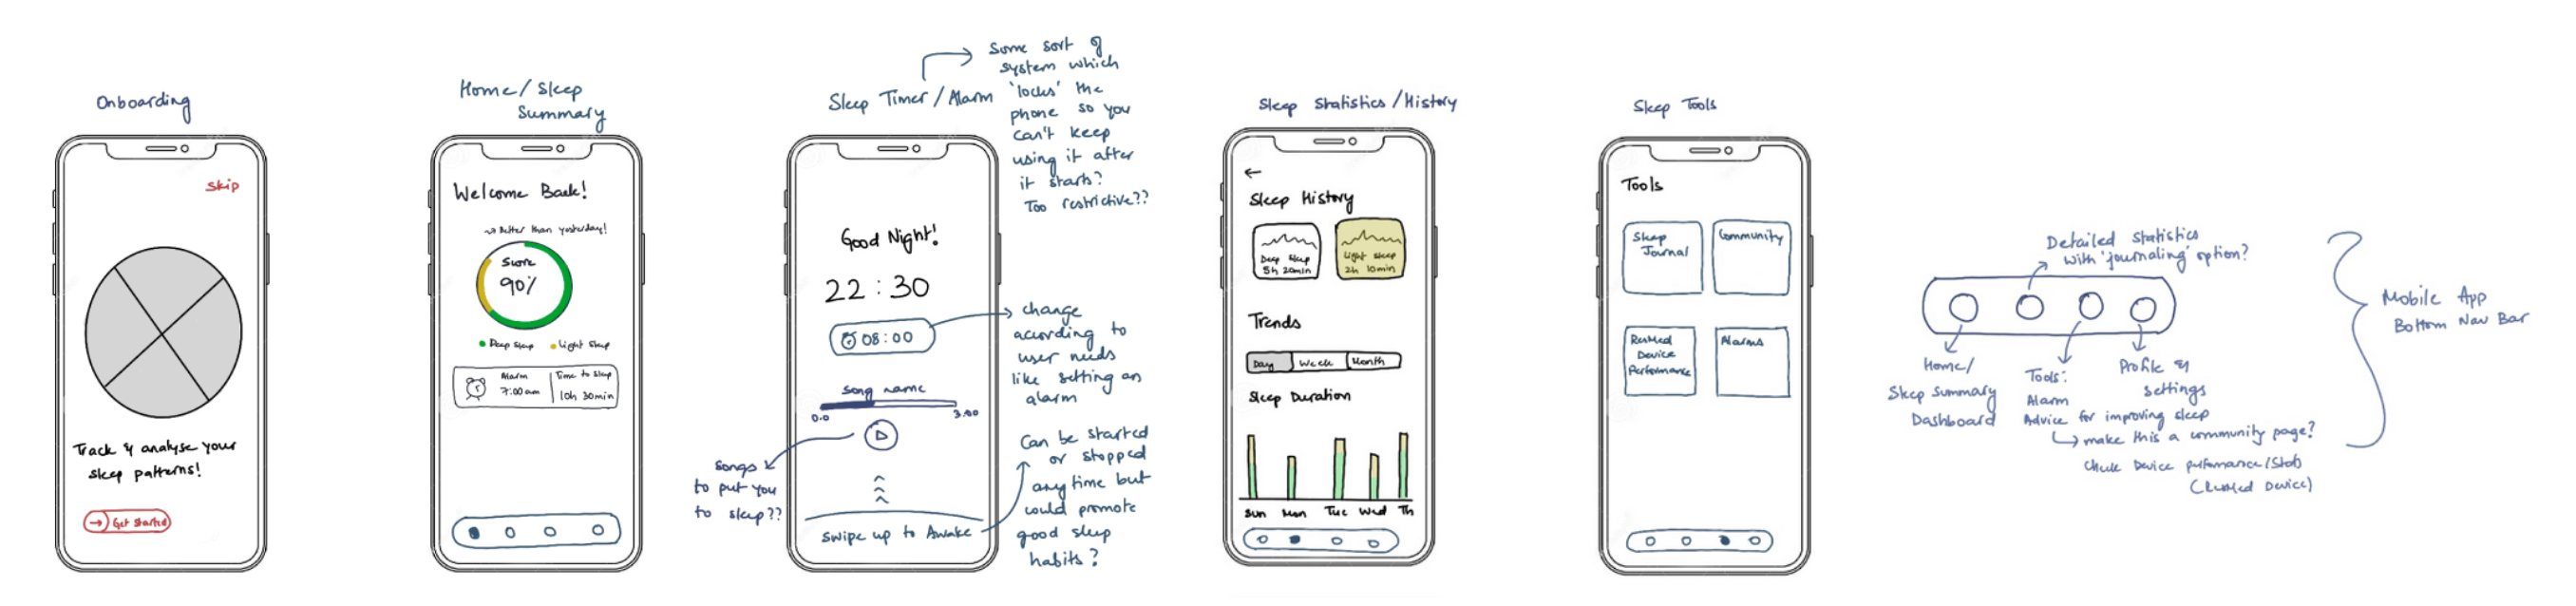 Onboarding
Skip
Track & analyse your
sleep patterns!
Get Started
Home/Sleep
Summary
Welcome Back!
Better than yesterday!
Score
90%
Deep Sleep
Light Sleep
Alarm
7:00am
Time to Sleep
10h 30min
Sleep Timer/Alarm
Some sort of
system which
'locks' the
phone so you
can't keep
using it after
it starts?
Too restrictive??
Good Night!
22:30
08:00
change
acording to
user needs
like setting an
alarm
Song name
0.0
3.00
songs
to put you
to sleep??
Swipe up to Awake
Can be started
or stopped
anytime but
could promote
good sleep
habits?
Sleep Statistics/History
Sleep History
Deep Sleep
5h 20min
Light Sleep
2h 10min
Trends
Day
Week
Month
Sleep Duration
Sun
Mon
Tue
Wed
Th
Sleep Tools
Tools
Sleep
Journal
Community
ResMed
Device
Performance
Alarms
Detailed Statistics
with 'journaling' option?
Home/
Sleep Summary
Dashboard
Tools:
Alarm
Advice for improving sleep
make this a community page?
Check Device performance/Stats
(ResMed Device)
Profile &
settings
Mobile App
Bottom Nav Bar